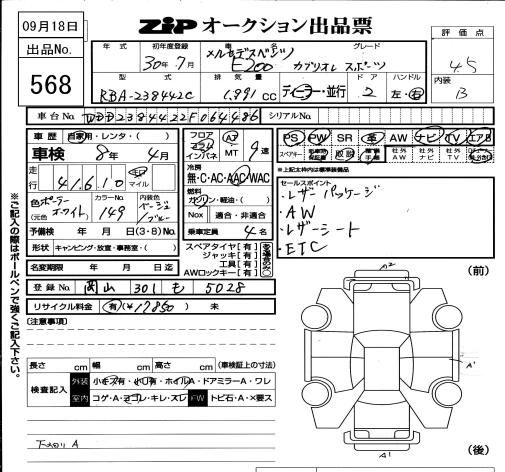 09月18日
ZIP オークション出品票
出品No.
568
年 式 初年度登録 車 名 グレード
30年 7月 メルセデスベンツ E200 カブリオレ スポーツ
型 式 排 気 量 ドア ハンドル
RBA-238442C 1,991 CC ディーラー・並行 2 左・右
評 価 点
4.5
内装
B
車台No. WDD2384422F064486 シリアルNo.
車 歴 自家用・レンタ・( )
車検 8年 4月
走行 41,610 km マイル
色 (元色) ポーラーホワイト カラーNo. 149 内装色 ベージュ/ブルー
予備検 年 月 日(3・8)No.
形状 キャンピング・放送・事務室・( )
名変期限 年 月 日迄
登 録 No. 岡山 301 も 5028
リサイクル料金 有(¥17850) 未
フロア コラム インパネ AT MT 9速
冷房
無・C・AC・AAC・WAC
燃料
ガソリン・軽油・( )
Nox 適合・非適合
乗車定員 4名
スペアタイヤ[有]
ジャッキ[有]
工具[有]
AWロックキー[有]
PS PW SR 革 AW ナビ TV エアB
スペアキー 取説 社外AW 社外ナビ 社外TV
*上記太枠内は標準装備品
セールスポイント
・レザーパッケージ
・AW
・レザーシート
・ETC
(注意事項)
長さ cm 幅 cm 高さ cm (車検証上の寸法)
検査記入 外装 小キズ有・小凹有・ホイルA・ドアミラーA・ワレ
室内 コゲA・ヨゴレ・キレ・スレ FW トビ石A・X要ス
下廻り A
(前)
A2
A1
A1
(後)
※ご記入の際はボールペンで強くご記入下さい。